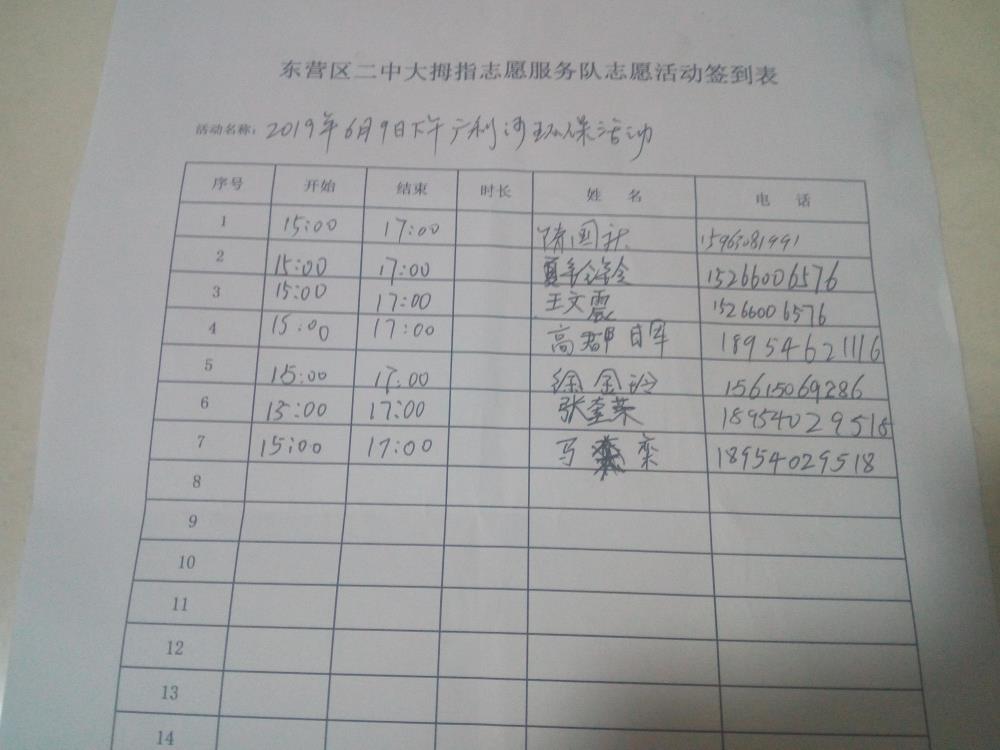 东营区二中大拇指志愿服务队志愿活动签到表
活动名称: 2019年6月9日下午广利河环保活动
序号 开始 结束 时长 姓 名 电 话
1 15:00 17:00 国 15963081991
2 15:00 17:00 夏 15266006576
3 15:00 17:00 王文震 15266006576
4 15:00 17:00 高 18954621116
5 15:00 17:00 徐金玲 15615069286
6 15:00 17:00 张奎荣 18954029518
7 15:00 17:00 马 栾 18954029518
8
9
10
11
12
13
14